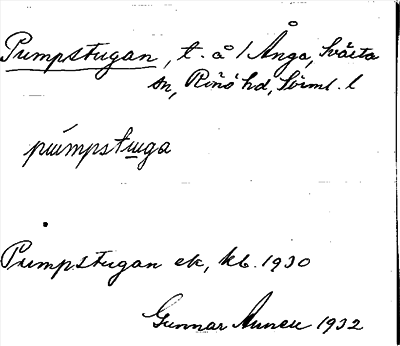 Pumpstugan, t. å / Ånga, Svärta
sn, Rönö hd, Sörml. l
pumpstuga
Pumpstugan ek, kb. 1930
Gunnar 1932